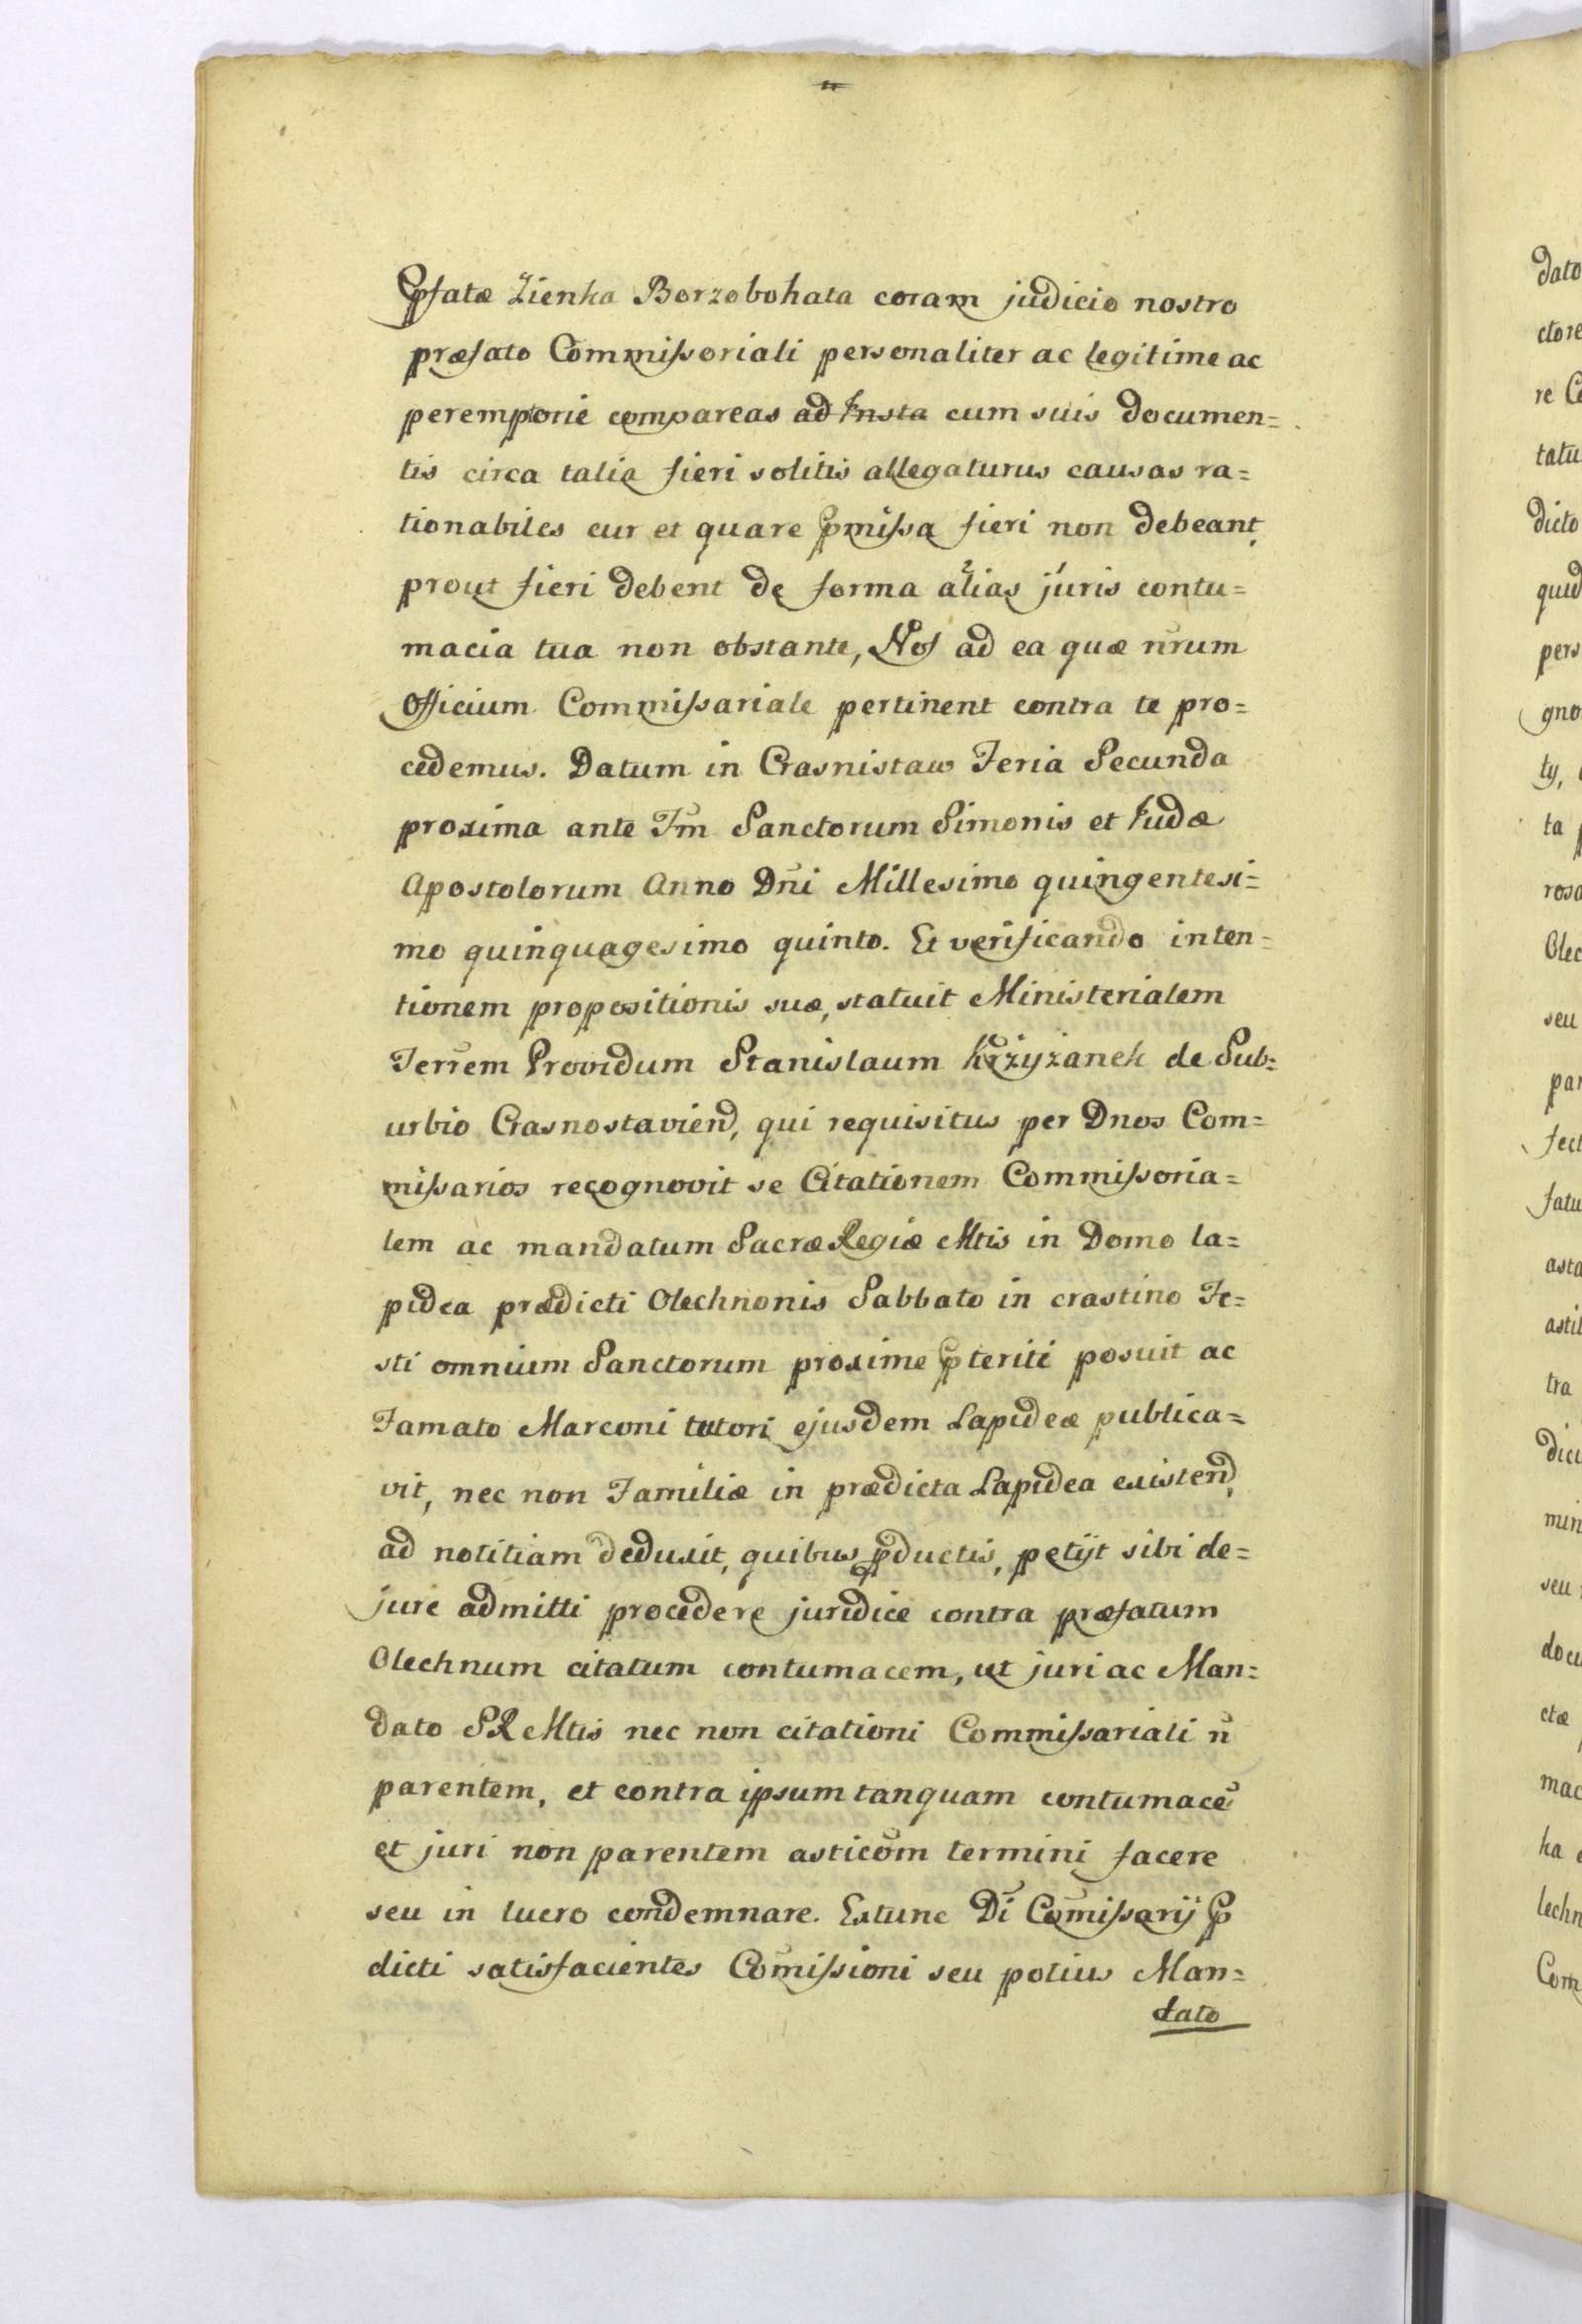 Pfatæ Zienka Borzobohata coram judicio nostro
præfato Commissoriali personaliter ac legitime ac
peremptorie compareas ad Insta cum suis documen=
tis circa talia fieri solitis allegaturus causas ra=
tionabiles cur et quare pmissa fieri non debeant,
prout fieri debent de forma alias juris contu=
macia tua non obstante, Nos ad ea quæ nrum
Officium Commissariale pertinent contra te pro=
cedemus. Datum in Crasnistaw Feria Secunda
proxima ante Fm Sanctorum Simonis et Judæ
Apostolorum Anno Dni Millesimo quingentesi=
mo quinquagesimo quinto. Et verificando inten=
tionem propositionis suæ, statuit Ministerialem
Terrem Providum Stanislaum Krzyżanek de Sub=
urbio Crasnostavien, qui requisitus per Dnos Com=
missarios recognovit se Citationem Commissoria=
lem ac mandatum Sacræ Regiæ Mtis in Domo la=
pidea prædicti Olechnonis Sabbato in crastino Fe=
sti omnium Sanctorum proxime pteriti posuit ac
Famato Marconi tutori ejusdem Lapideæ publica=
vit, nec non Familiæ in prædicta Lapidea existen,
ad notitiam deduxit, quibus pductis, petijt sibi de=
jure admitti procedere juridice contra præfatum
Olechnum citatum contumacem, ut juri ac Man=
dato SR Mtis nec non citationi Commissariali n
parentem, et contra ipsum tanquam contumace
et juri non parentem asticom termini facere
seu in lucro condemnare. Extunc Di Comissarij P
dicti satisfacientes Comissioni seu potius Man=
dato